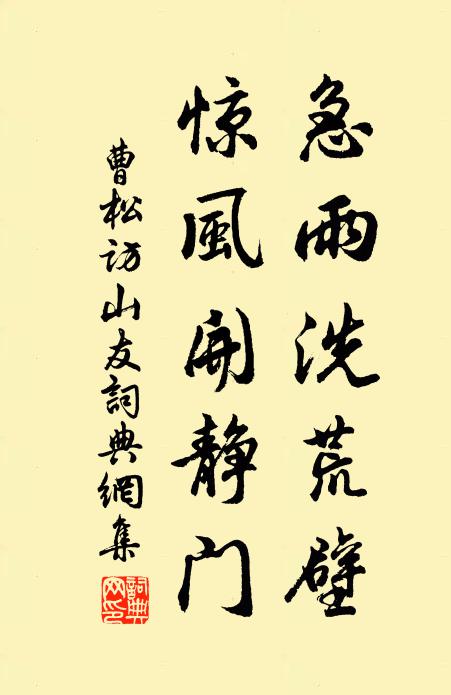 急雨洗荒壁
惊風開静门
曹松访山友詞典網集
詞典网印